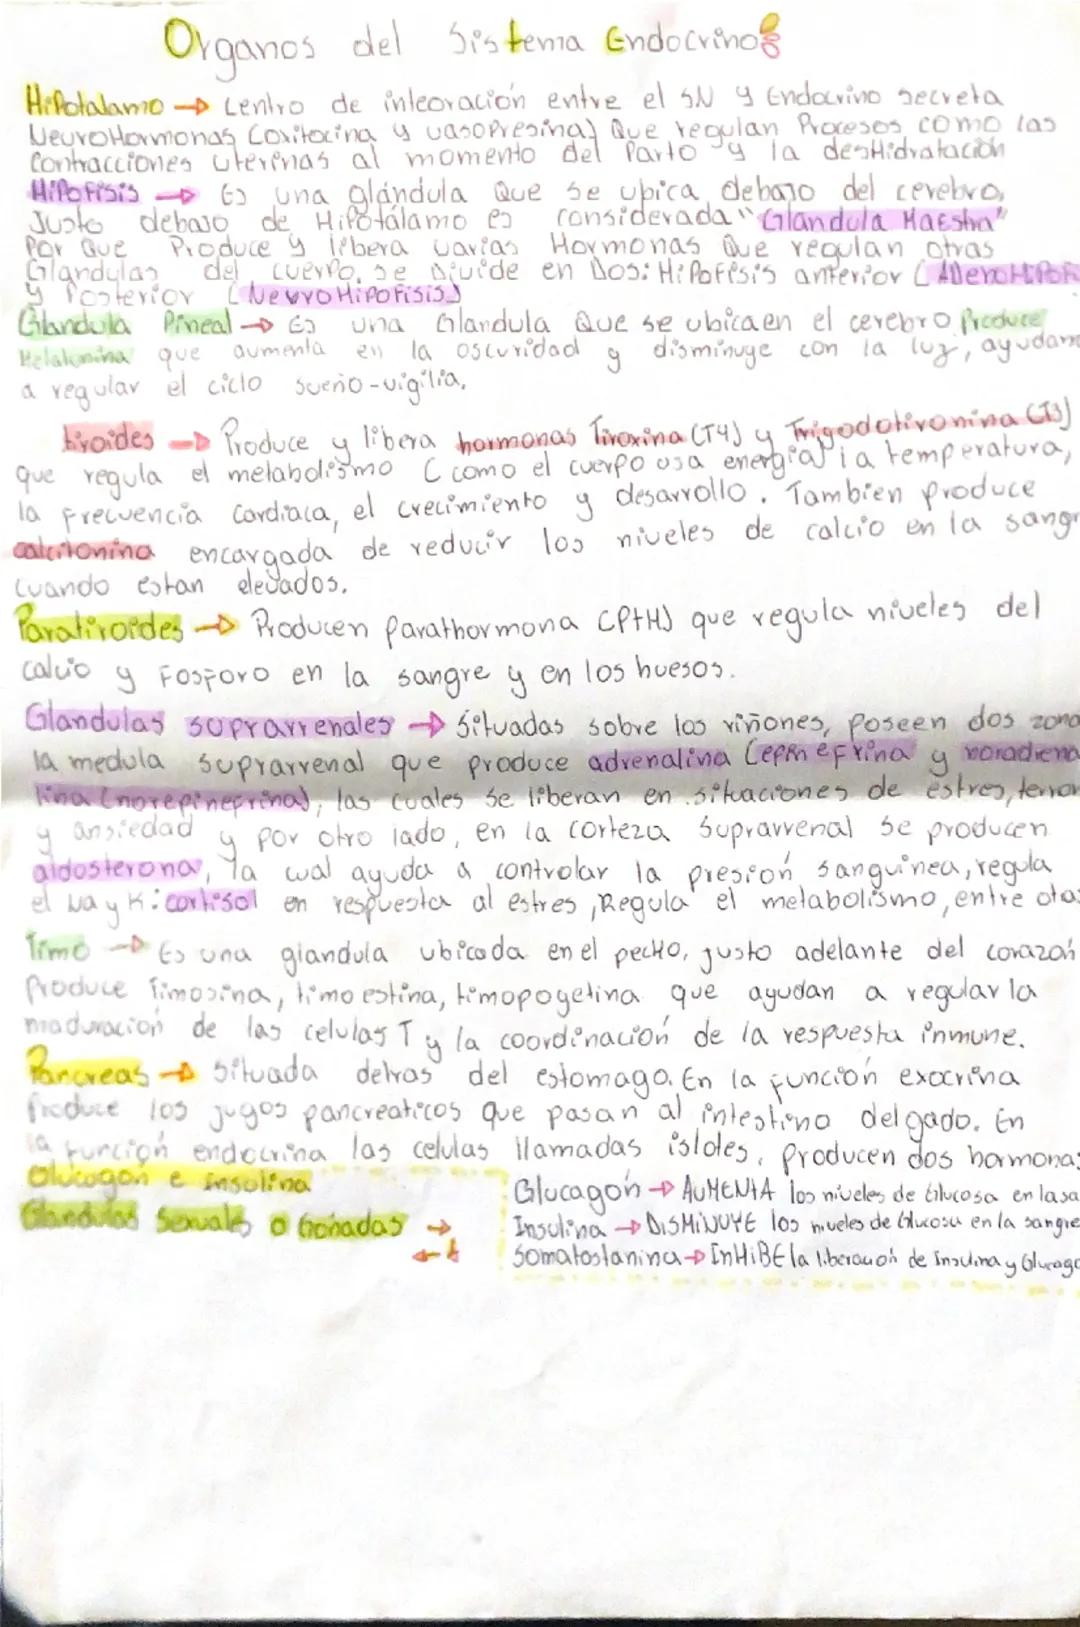 Organos del Sistema Endocrino
Hipotalamo → Centro de inteoración entre el SN y Endocrino secreta
NeuroHormonas (oxitocina y vasopresina) Que regulan Procesos como las
Contracciones uterinas al momento del Parto y la desHidratación
HiPofisis → Es una glándula Que se ubica debajo del cerebro,
Justo debajo de Hipotálamo es considerada "Glandula Maestra"
Por Que Produce y libera varias Hormonas Que regulan otras
Glandulas del cuerpo, se Divide en Dos: HiPofisis anterior (AdenoHiPofi
y Posterior (NeuroHiPofisis)
Glandula Pineal → Es una Glandula Que se ubica en el cerebro, Produce
Melatonina que aumenta en la oscuridad y disminuye con la luz, ayudan
a regular el ciclo sueño-vigilia.
tiroides → Produce y libera hormonas Tiroxina (T4) y Trigodotironina (T3)
que regula el metabolismo (como el cuerpo usa energia) la temperatura,
la frecuencia Cardiaca, el crecimiento y desarrollo. Tambien produce
calcitonina encargada de reducir los niveles de calcio en la sangr
cuando estan elevados.
Paratiroides → Producen parathormona (PtH) que regula niveles del
calcio y Fosforo en la sangre y en los huesos.
Glandulas suprarrenales → Situadas sobre los riñones, poseen dos zona
la medula suprarrenal que produce adrenalina (epinefrina y noradrena
lina (norepinefrina), las cuales se liberan en situaciones de estres, terror
y ansiedad y por otro lado, en la corteza suprarrenal se producen
aldosterona, la cual ayuda a controlar la presión sanguinea, regula
el Na y K: cortisol en respuesta al estres, Regula el metabolismo, entre otas
Timo → Es una glandula ubicada en el pecHo, justo adelante del corazón
Produce Timosina, timoestina, timopoyetina que ayudan a regular la
maduración de las celulas T y la coordinación de la respuesta inmune.
Pancreas → Situada detras del estomago. En la función exocrina
Produce los jugos pancreaticos que pasan al intestino delgado. En
la función endocrina las celulas llamadas islotes, producen dos hormona:
Glucagon e insulina
Glandulas Sexuales o Gonadas →
Glucagón → AUMENTA los niveles de Glucosa en la sa
Insulina → DISMINUYE los niveles de Glucosa en la sangre
Somatostanina → INHIBE la liberación de Insulina y Glucago